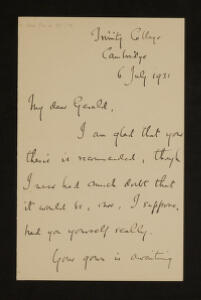 Trinity College
Cambridge
6 July 1931
My dear Gerald,
I am glad that your
thesis is recommended, though
I never had much doubt that
it would be, nor, I suppose,
had you yourself really.
Your gown is awaiting